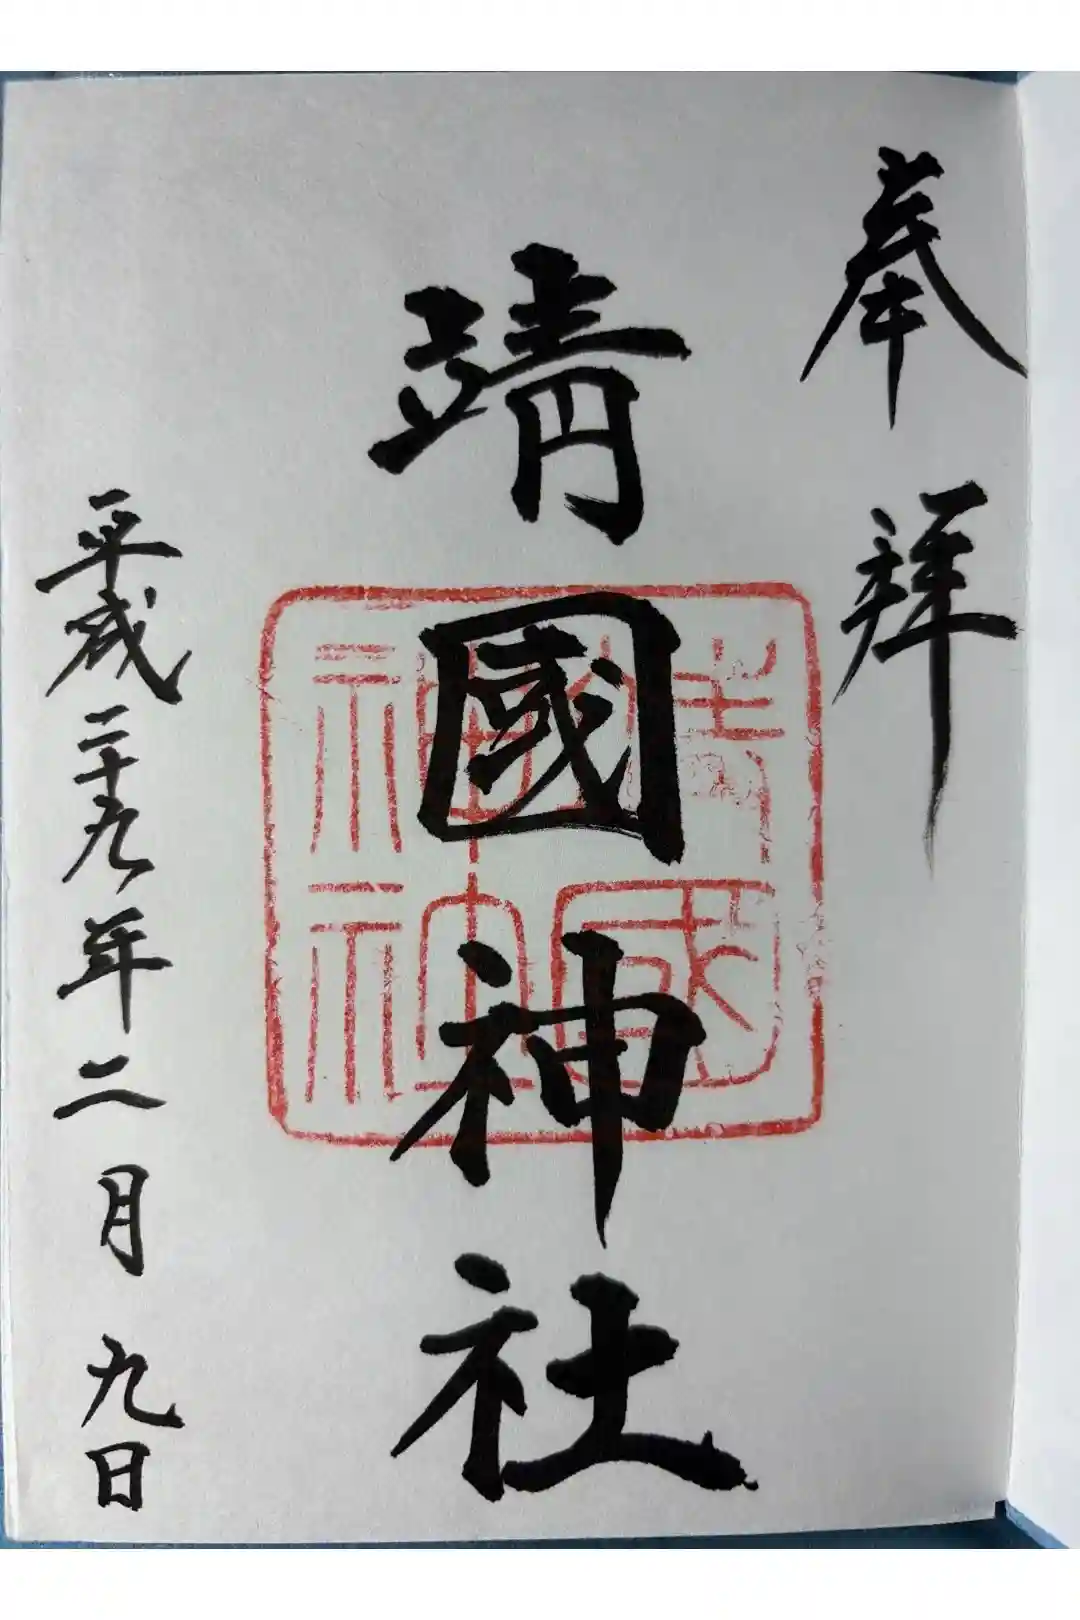 奉拝
靖國神社
靖國神社
平成二十九年二月九日